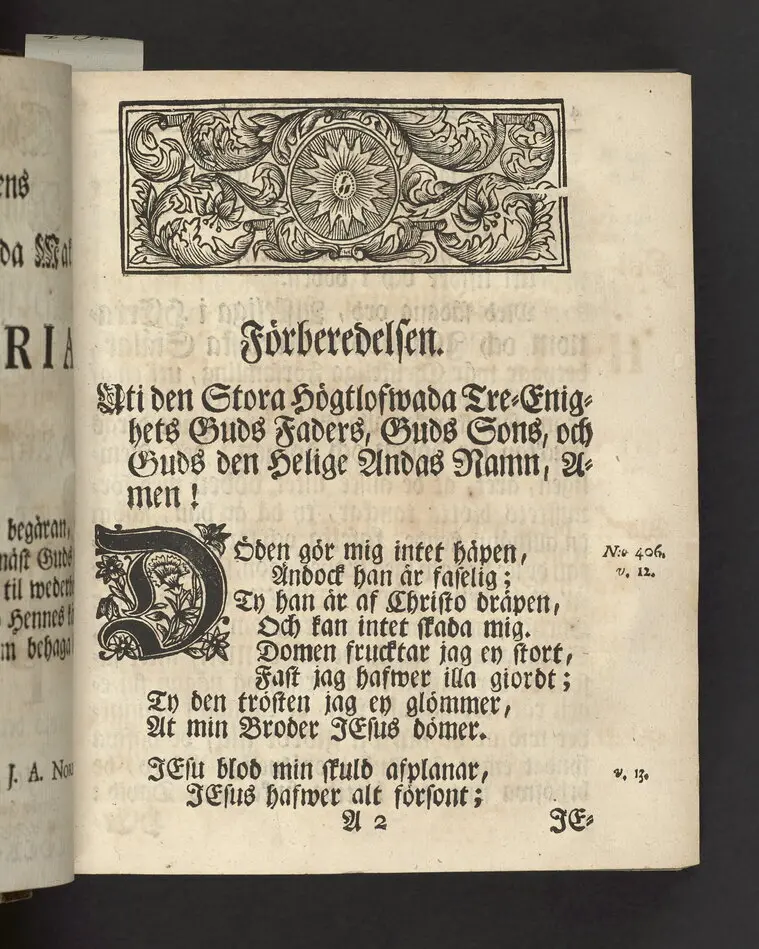 ens
RIA
begäran,
näst Guds
til
Hennes
behaga
J. A.
Förberedelsen.
Uti den Stora Högtlofwada Tre-Enig-
hets Guds Faders, Guds Sons, och
Guds den Helige Andas Namn, A-
men!
Döden gör mig intet häpen,
N:o 406.
Ändock han är faselig;
v. 12.
Ty han är af Christo dräpen,
Och kan intet skada mig.
Domen frucktar jag ey stort,
Fast jag hafwer illa giordt;
Ty den trösten jag ey glömmer,
At min Broder JEsus dömer.
JEsu blod min skuld afplanar,
v. 13.
JEsus hafwer alt försont;
A 2
JE-